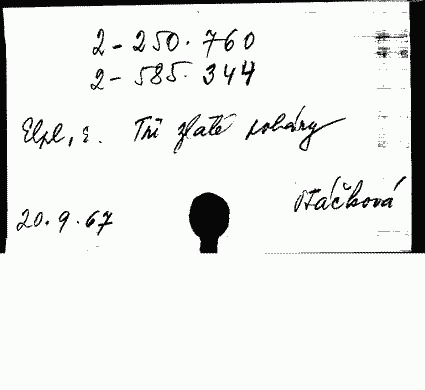 2-250.760
2-585.344
Elpl, E. Tři zlaté poháry
Ptáčková
20.9.67